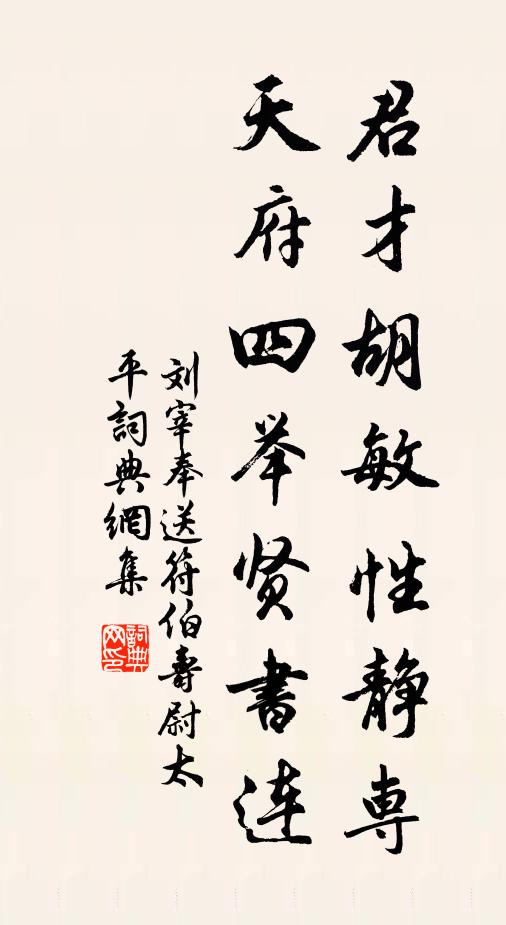 君才胡敏性静専
天府四举贤書連
刘宰奉送符伯壽尉太
平詞典網集
詞典网印